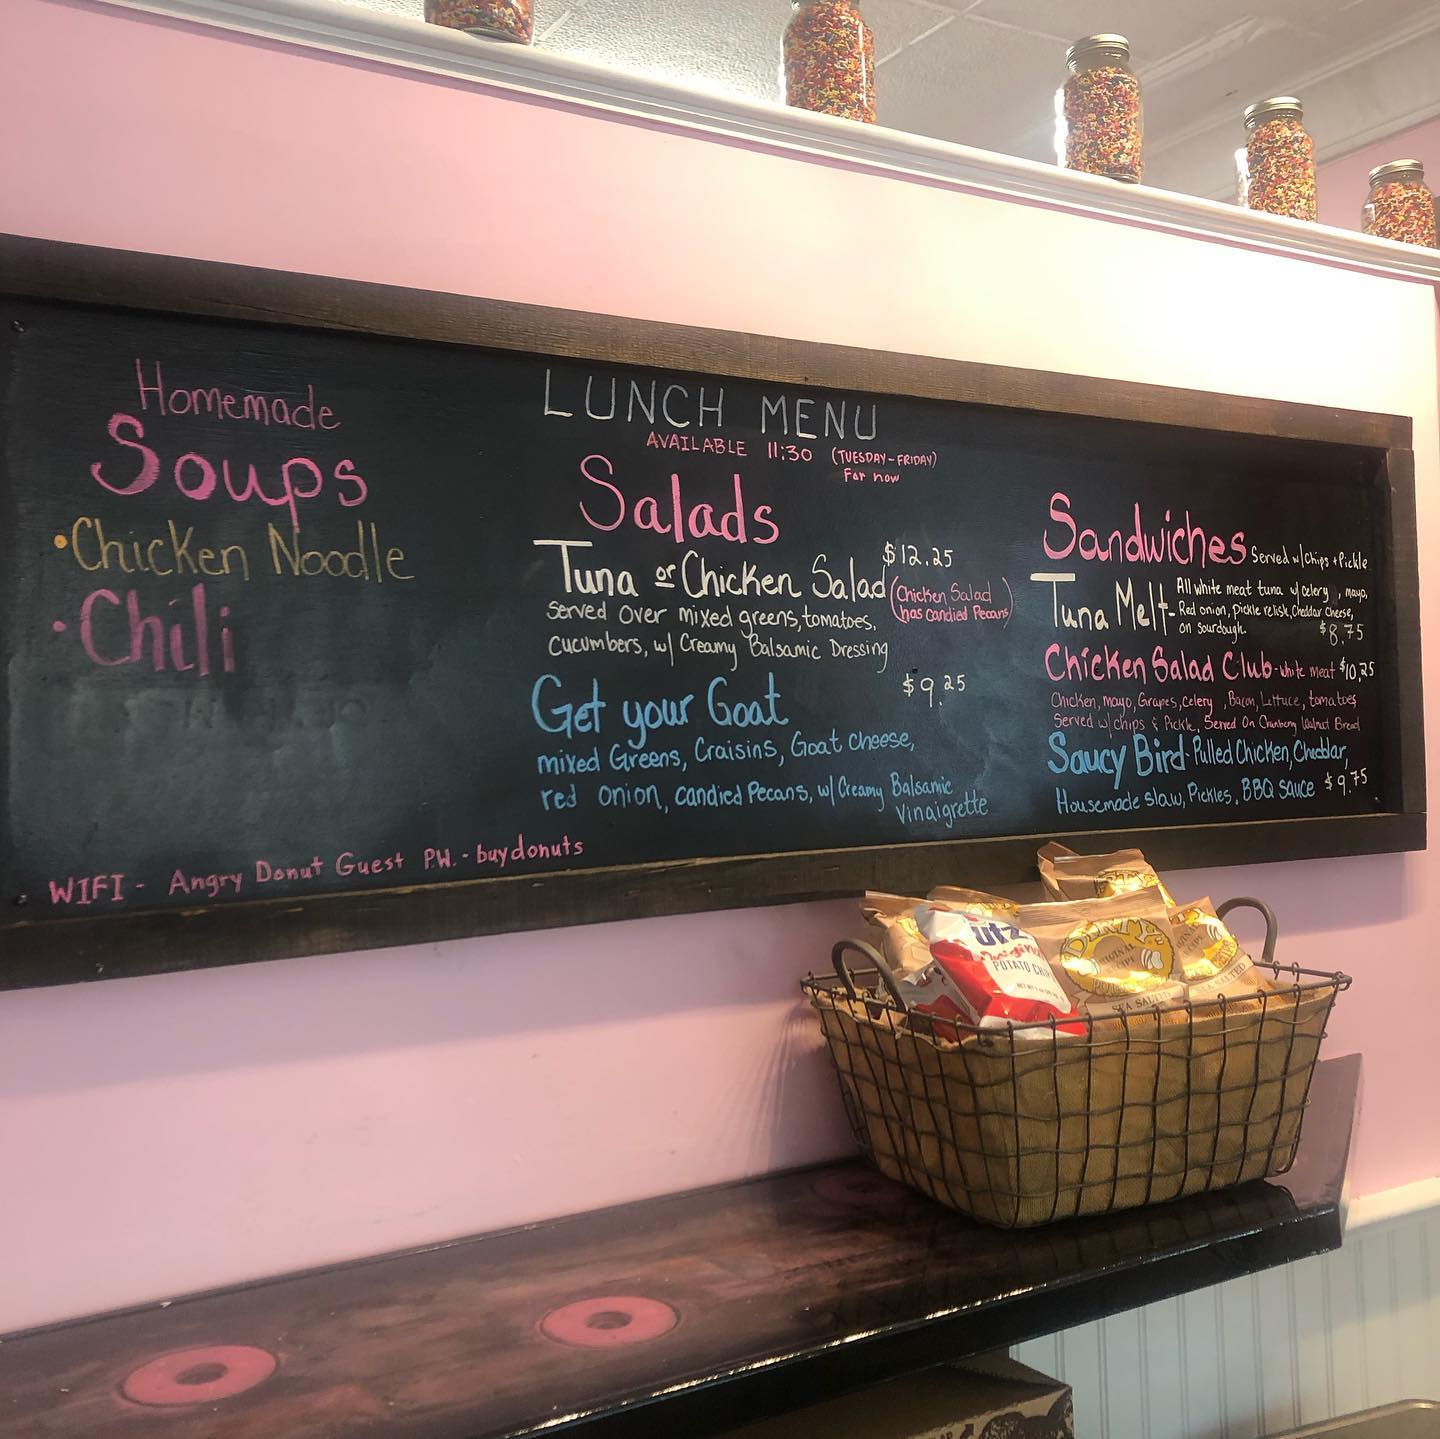 Homemade
Soups
•Chicken Noodle
•Chili
LUNCH MENU
AVAILABLE 11:30 (TUESDAY-FRIDAY)
For now
Salads
Tuna or Chicken Salad $12.25
(Chicken Salad
has Candied Pecans)
Served Over mixed greens, tomatoes,
Cucumbers, w/ Creamy Balsamic Dressing
Get your Goat $9.25
mixed Greens, Craisins, Goat Cheese,
red onion, candied Pecans, w/ Creamy Balsamic
Vinaigrette
Sandwiches Served w/ Chips + Pickle
Tuna Melt- All white meat tuna w/ celery, mayo,
Red onion, Pickle relish, Cheddar Cheese,
on sourdough. $8.75
Chicken Salad Club-white meat $10.25
Chicken, mayo, Grapes, celery, Bacon, Lettuce, tomatoes
Served w/ chips & Pickle, Served On Cranberry Walnut Bread
Saucy Bird-Pulled Chicken, Cheddar,
Housemade slaw, Pickles, BBQ sauce $9.75
WIFI - Angry Donut Guest P.W. - buydonuts
Utz
Original
POTATO CHIPS
DIRTY
ORIGINAL
SEA SALTED